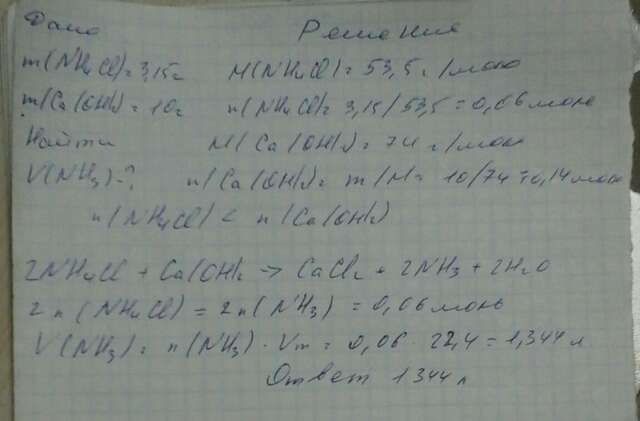 Дано Решение
m(NH4Cl)=3,15г M(NH4Cl)=53,5 г/моль
m(Ca(OH)2)=10г n(NH4Cl)=3,15/53,5=0,06моль
Найти M(Ca(OH)2)=74 г/моль
V(NH3)-? n(Ca(OH)2)=m/M=10/74=0,14моль
n(NH4Cl) < n(Ca(OH)2)
2NH4Cl + Ca(OH)2 → CaCl2 + 2NH3 + 2H2O
2n(NH4Cl) = 2n(NH3) = 0,06моль
V(NH3)= n(NH3) · Vm = 0,06 · 22,4 = 1,344 л
Ответ 1 344 л